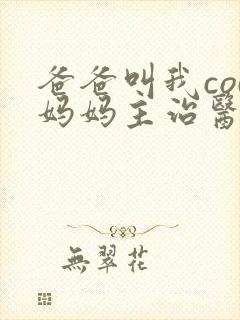 爸爸叫我co
妈妈主治醫
無翠花